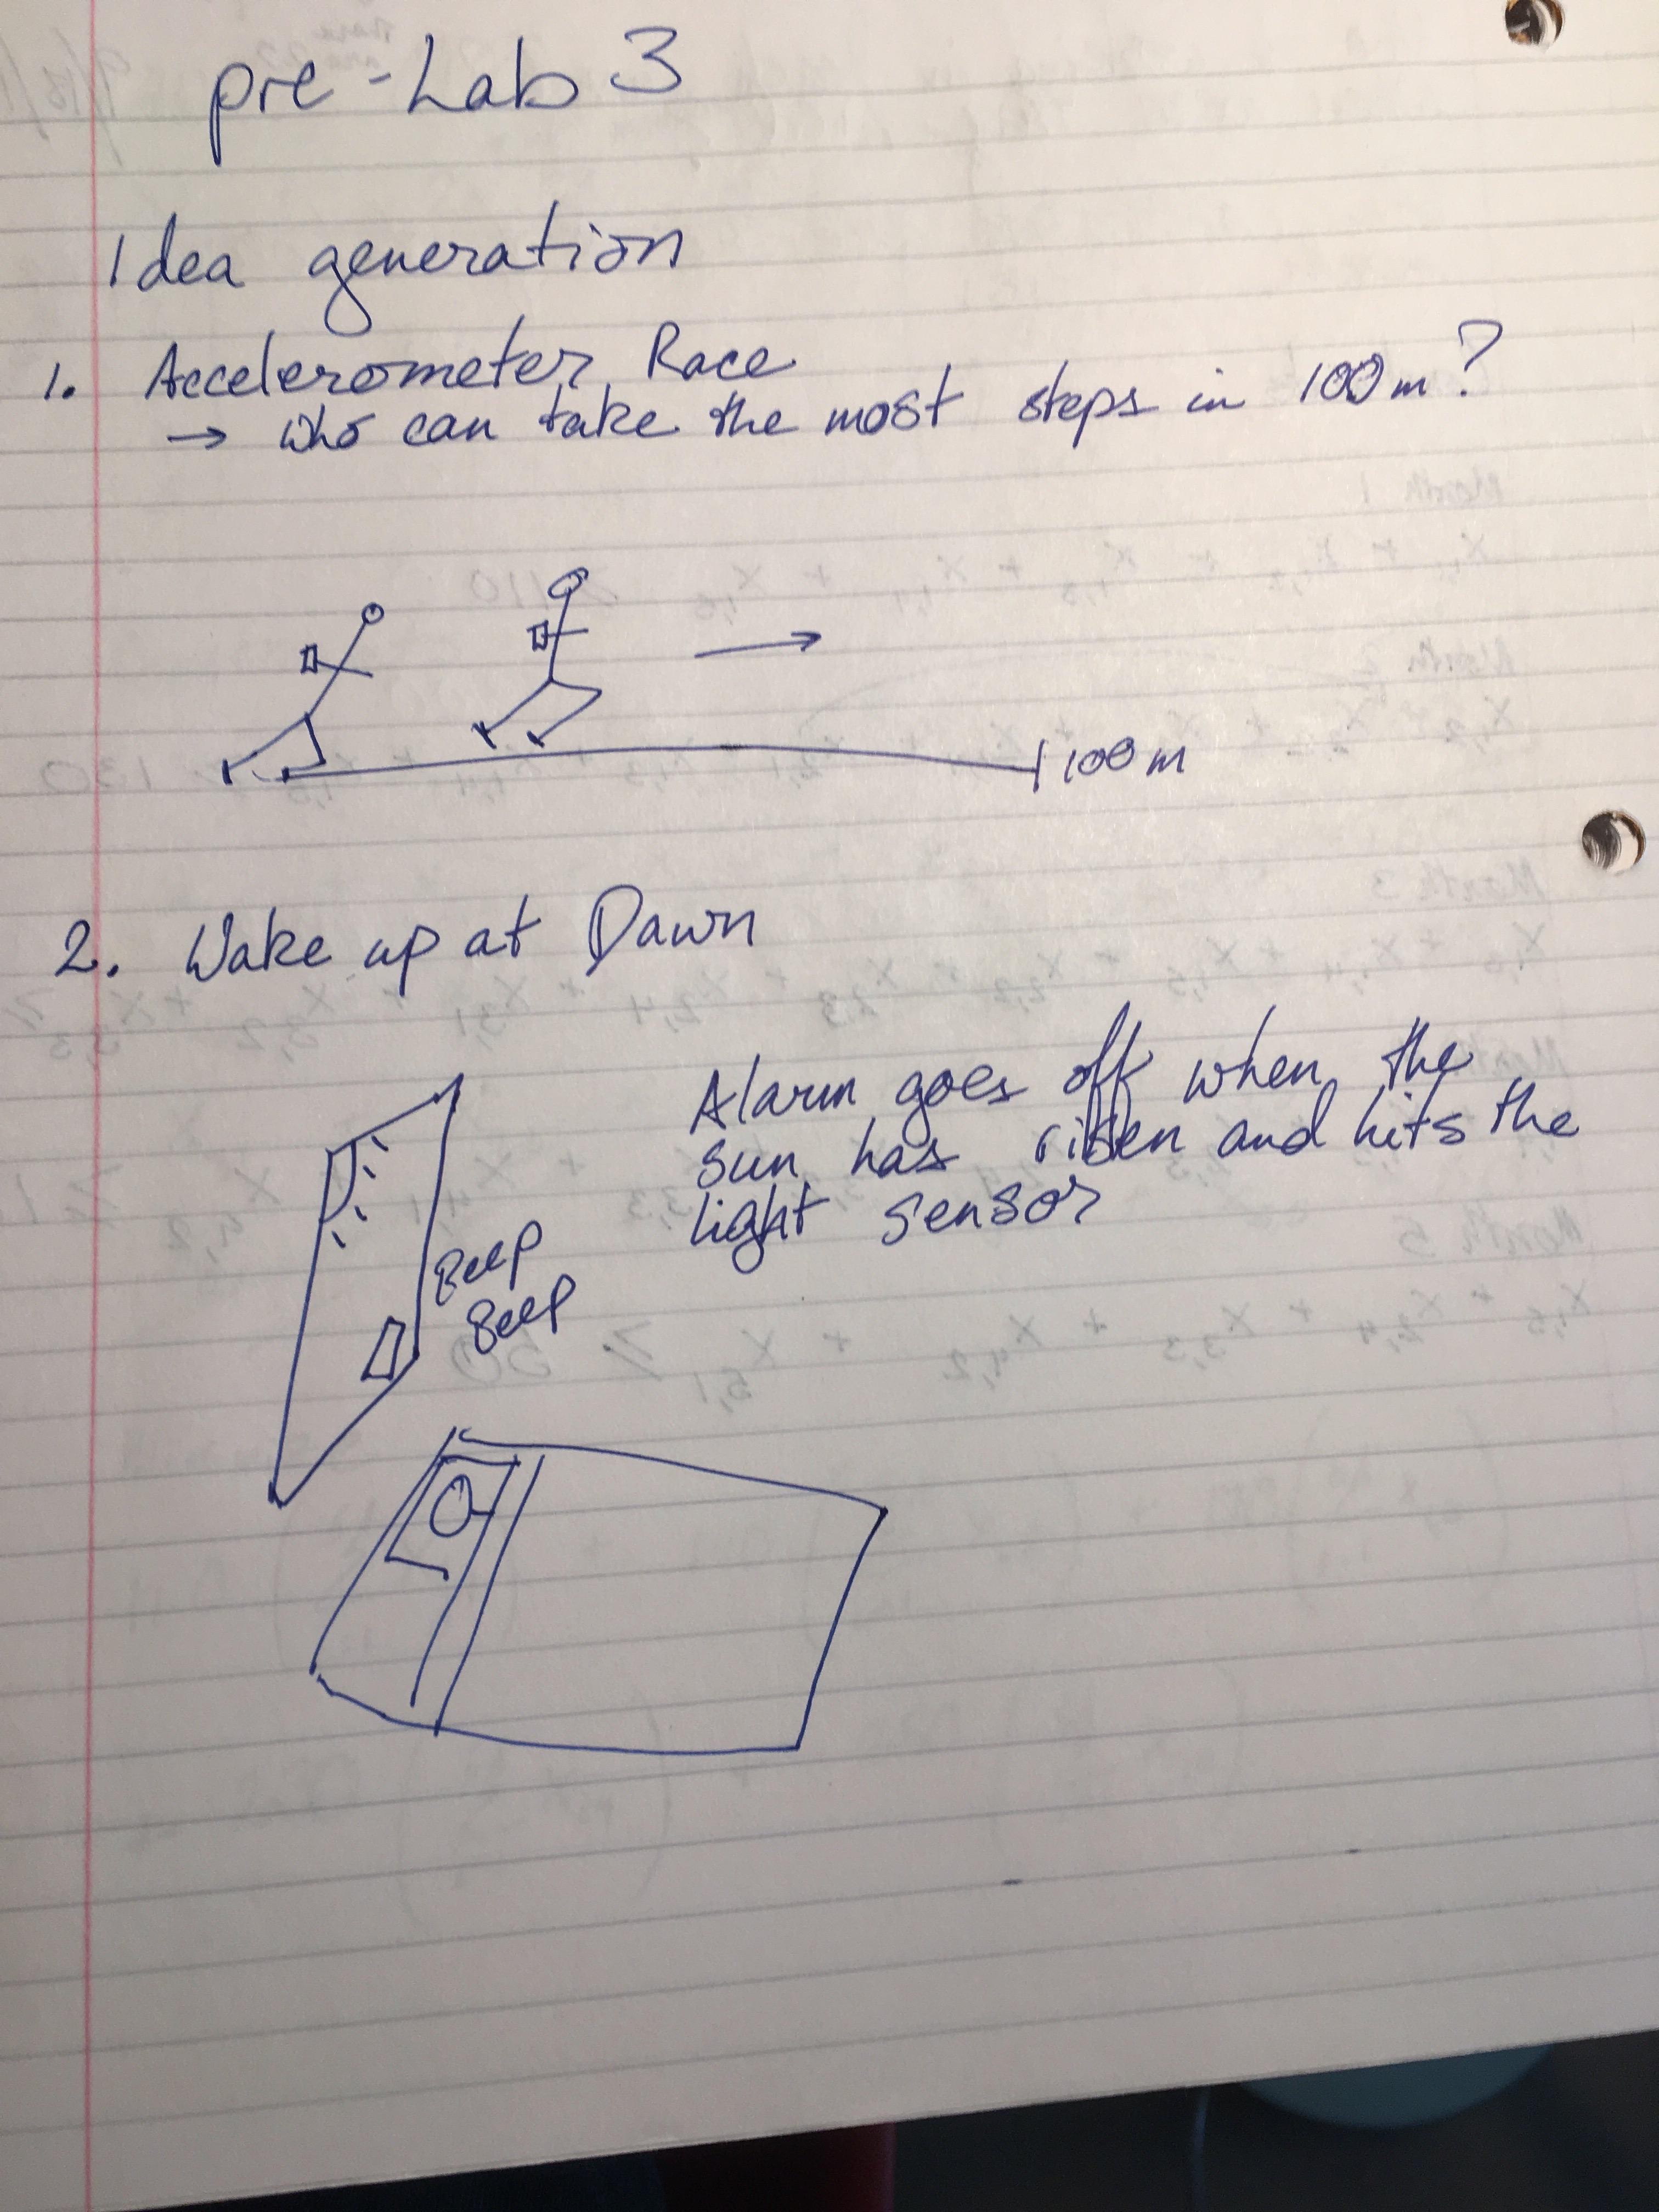 pre-Lab 3
Idea generation
1. Accelerometer Race
→ who can take the most steps in 100m?
100m
2. Wake up at Dawn
Alarm goes off when the
sun has risen and hits the
light sensor
Beep
Beep